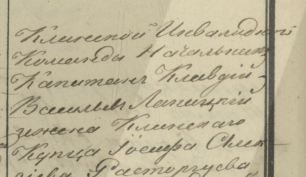 Клинской Инвалидной
Команды Начальник
Капитан Клавдий
Васильев Лапицкий
жена Клинскаго
Купца Іосифа Алек
сѣева Расторгуева